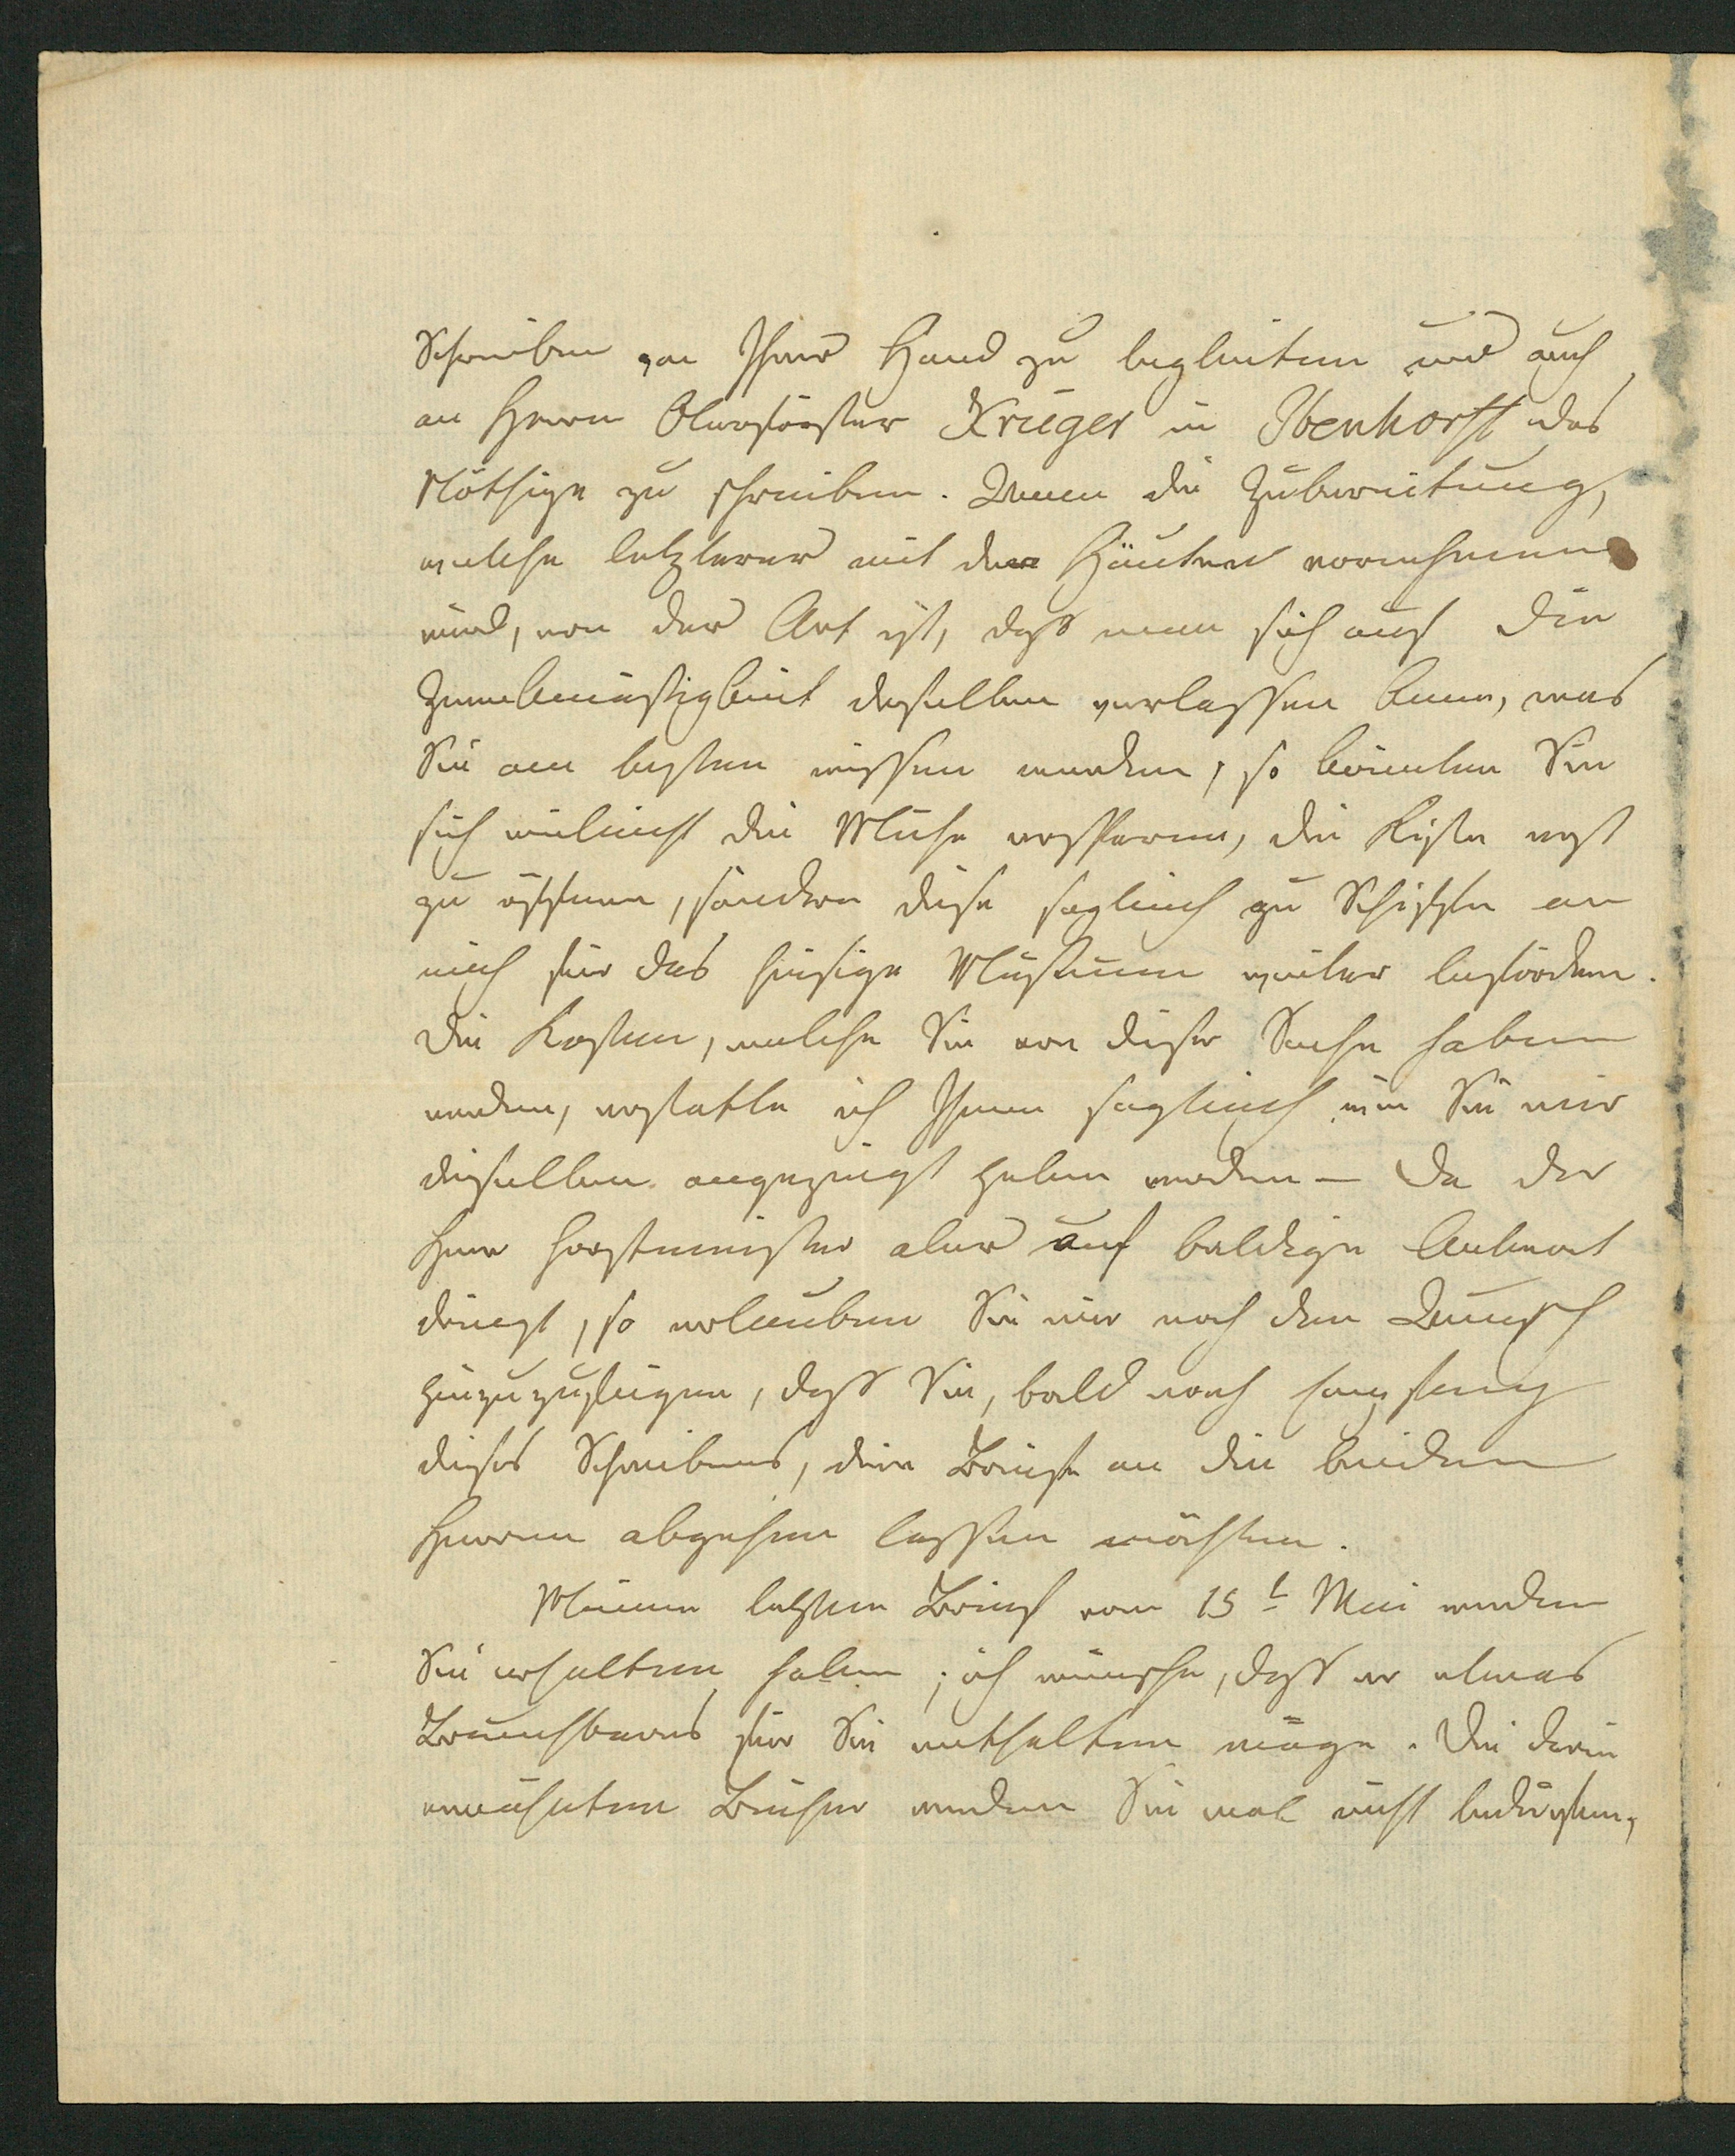 Schreiben von Ihrer Hand zu begleiten und auch
an Herrn Oberförster Krüger in Ibenhorst das
Nöthige zu schreiben. Wenn die Zubereitung,
welche letzterer mit den Häuten vornehmen
wird, von der Art ist, daß man sich auf die
Zweckmäßigkeit derselben verlassen kann, was
Sie am besten wissen werden, so könnten Sie
sich vielleicht die Mühe ersparen, die Kiste erst
zu öffnen, sondern diese sogleich zu Schiffe an
mich für das hiesige Museum weiter befördern.
Die Kosten, welche Sie von dieser Sache haben
werden, erstatte ich Ihnen sogleich wie Sie mir
dieselben angezeigt haben werden – Da der
Herr Forstmeister aber auf baldige Antwort
dringt, so erlauben Sie mir noch den Wunsch
hinzuzufügen, daß Sie, bald nach Empfang
dieses Schreibens, die Briefe an die beiden
Herren abgehen lassen möchten.
Meinen letzten Brief vom 15t Mai werden
Sie erhalten haben; ich wünsche, daß er etwas
Brauchbares für Sie enthalten möge. Die darin
erwähnten Bücher werden Sie wol nicht bedürfen,